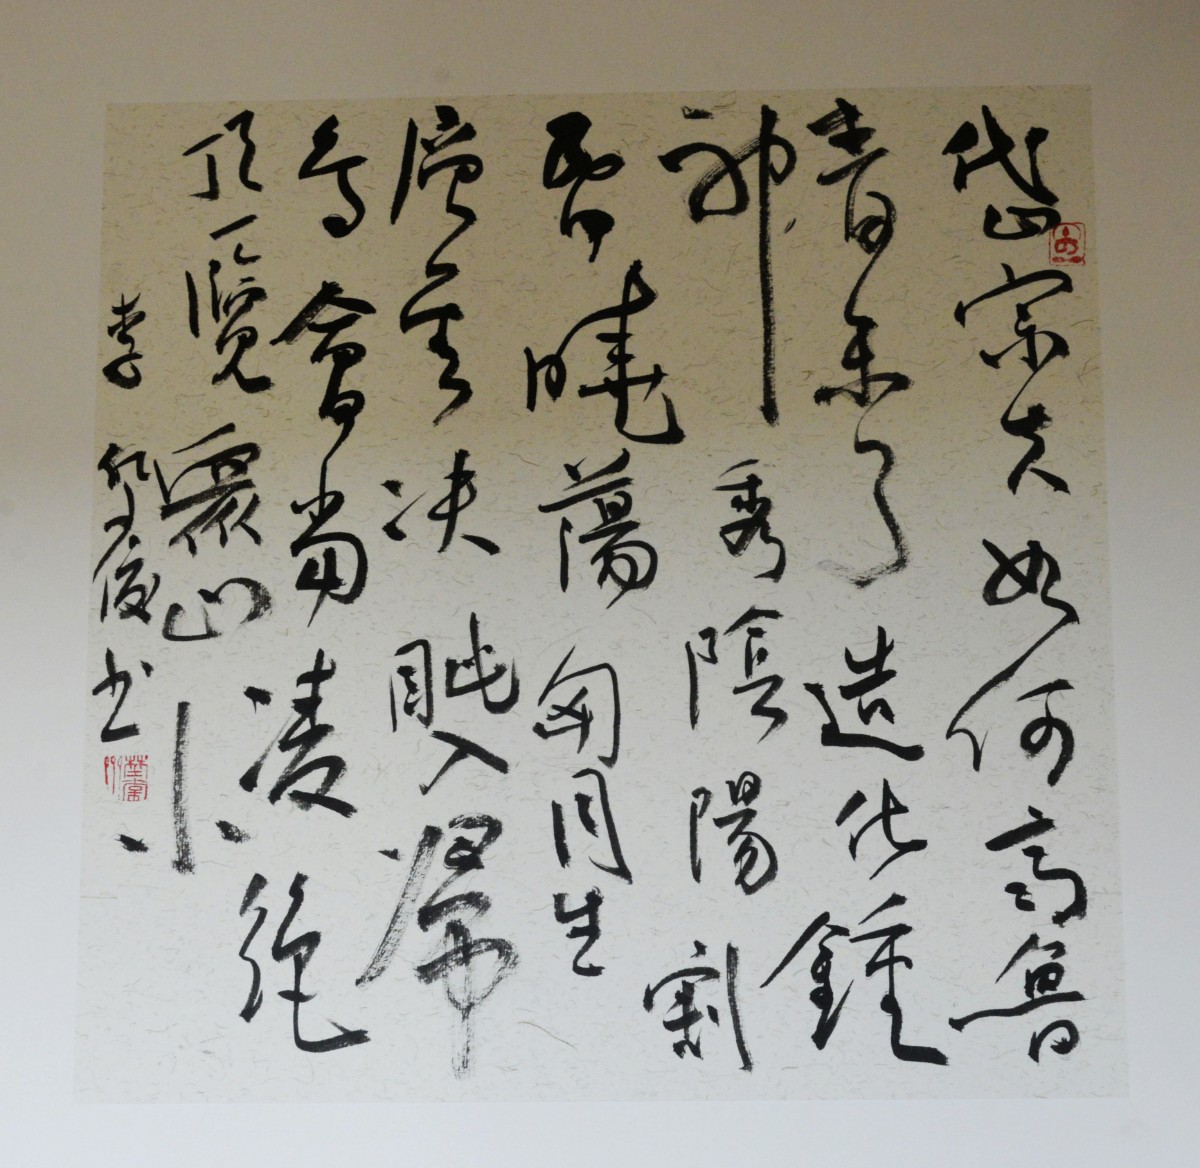 岱宗夫如何齊魯
青未了造化鍾
神秀陰陽割
昬曉蕩胸生
層雲決眦入歸
鳥會當凌絕
頂一覽眾山小
李 书